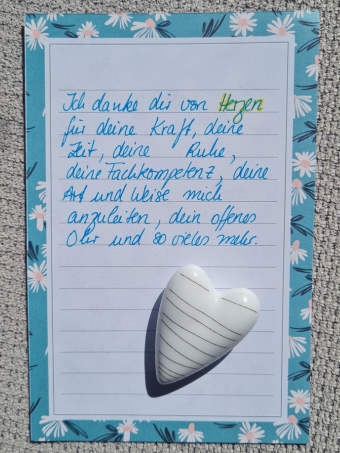 Ich danke dir von Herzen
für deine Kraft, deine
Zeit, deine Ruhe,
deine Fachkompetenz, deine
Art und Weise mich
anzuleiten, dein offenes
Ohr und so vieles mehr.